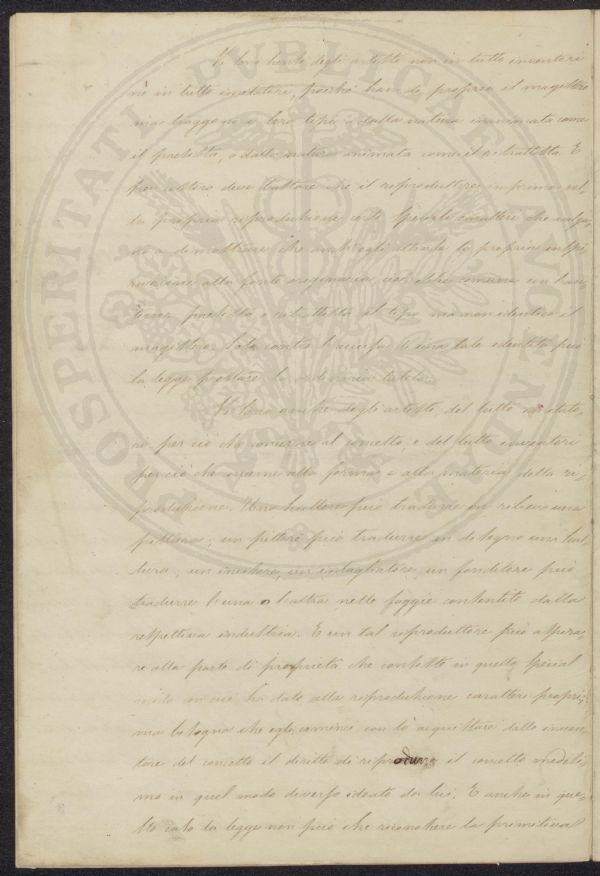 Vi sono bensì degli artisti non in tutto inventori
nè in tutto imitatori, poichè han di proprio il magistero
ma traggono i loro tipi o dalla natura inanimata come
il paesista, o dalla natura animata come il ritrattista. E
per costoro deve bastare che il riproduttore imprima nel
la propria riproduzione certi speciali caratteri che valga
no a dimostrare che anch'egli attinse la propria inspi
razione alla fonte originaria cioè che comune con l'an
teriore paesista o ritrattista il tipo, ma non identico il
magistero. Solo contro l'accusa di una tale identità può
la legge prestare la ordinaria tutela.
Vi sono anche degli artisti, del tutto imitato
ri per ciò che concerne al concetto, e del tutto inventori
per ciò che concerne alla forma e alla materia della ri-
produzione. Uno scultore può tradurre in rilievo una
pittura; un pittore può tradurre in disegno una scul
tura; un incisore, un intagliatore, un fonditore può
tradurre l'una o l'altra nelle foggie consentite dalla
rispettiva industria. E un tal riproduttore può aspira-
re alla parte di proprietà che consiste in quello special
modo con cui ha dato alla riproduzione carattere proprio;
ma bisogna che egli cominci con lo acquistare dallo inven-
tore del concetto il diritto di riprodurre il concetto medesi-
mo in quel modo diverso ideato da lui. E anche in que-
sto caso la legge non può che riconoscere la primitiva
PROSPERITATI PUBLICAE AVGENDAE